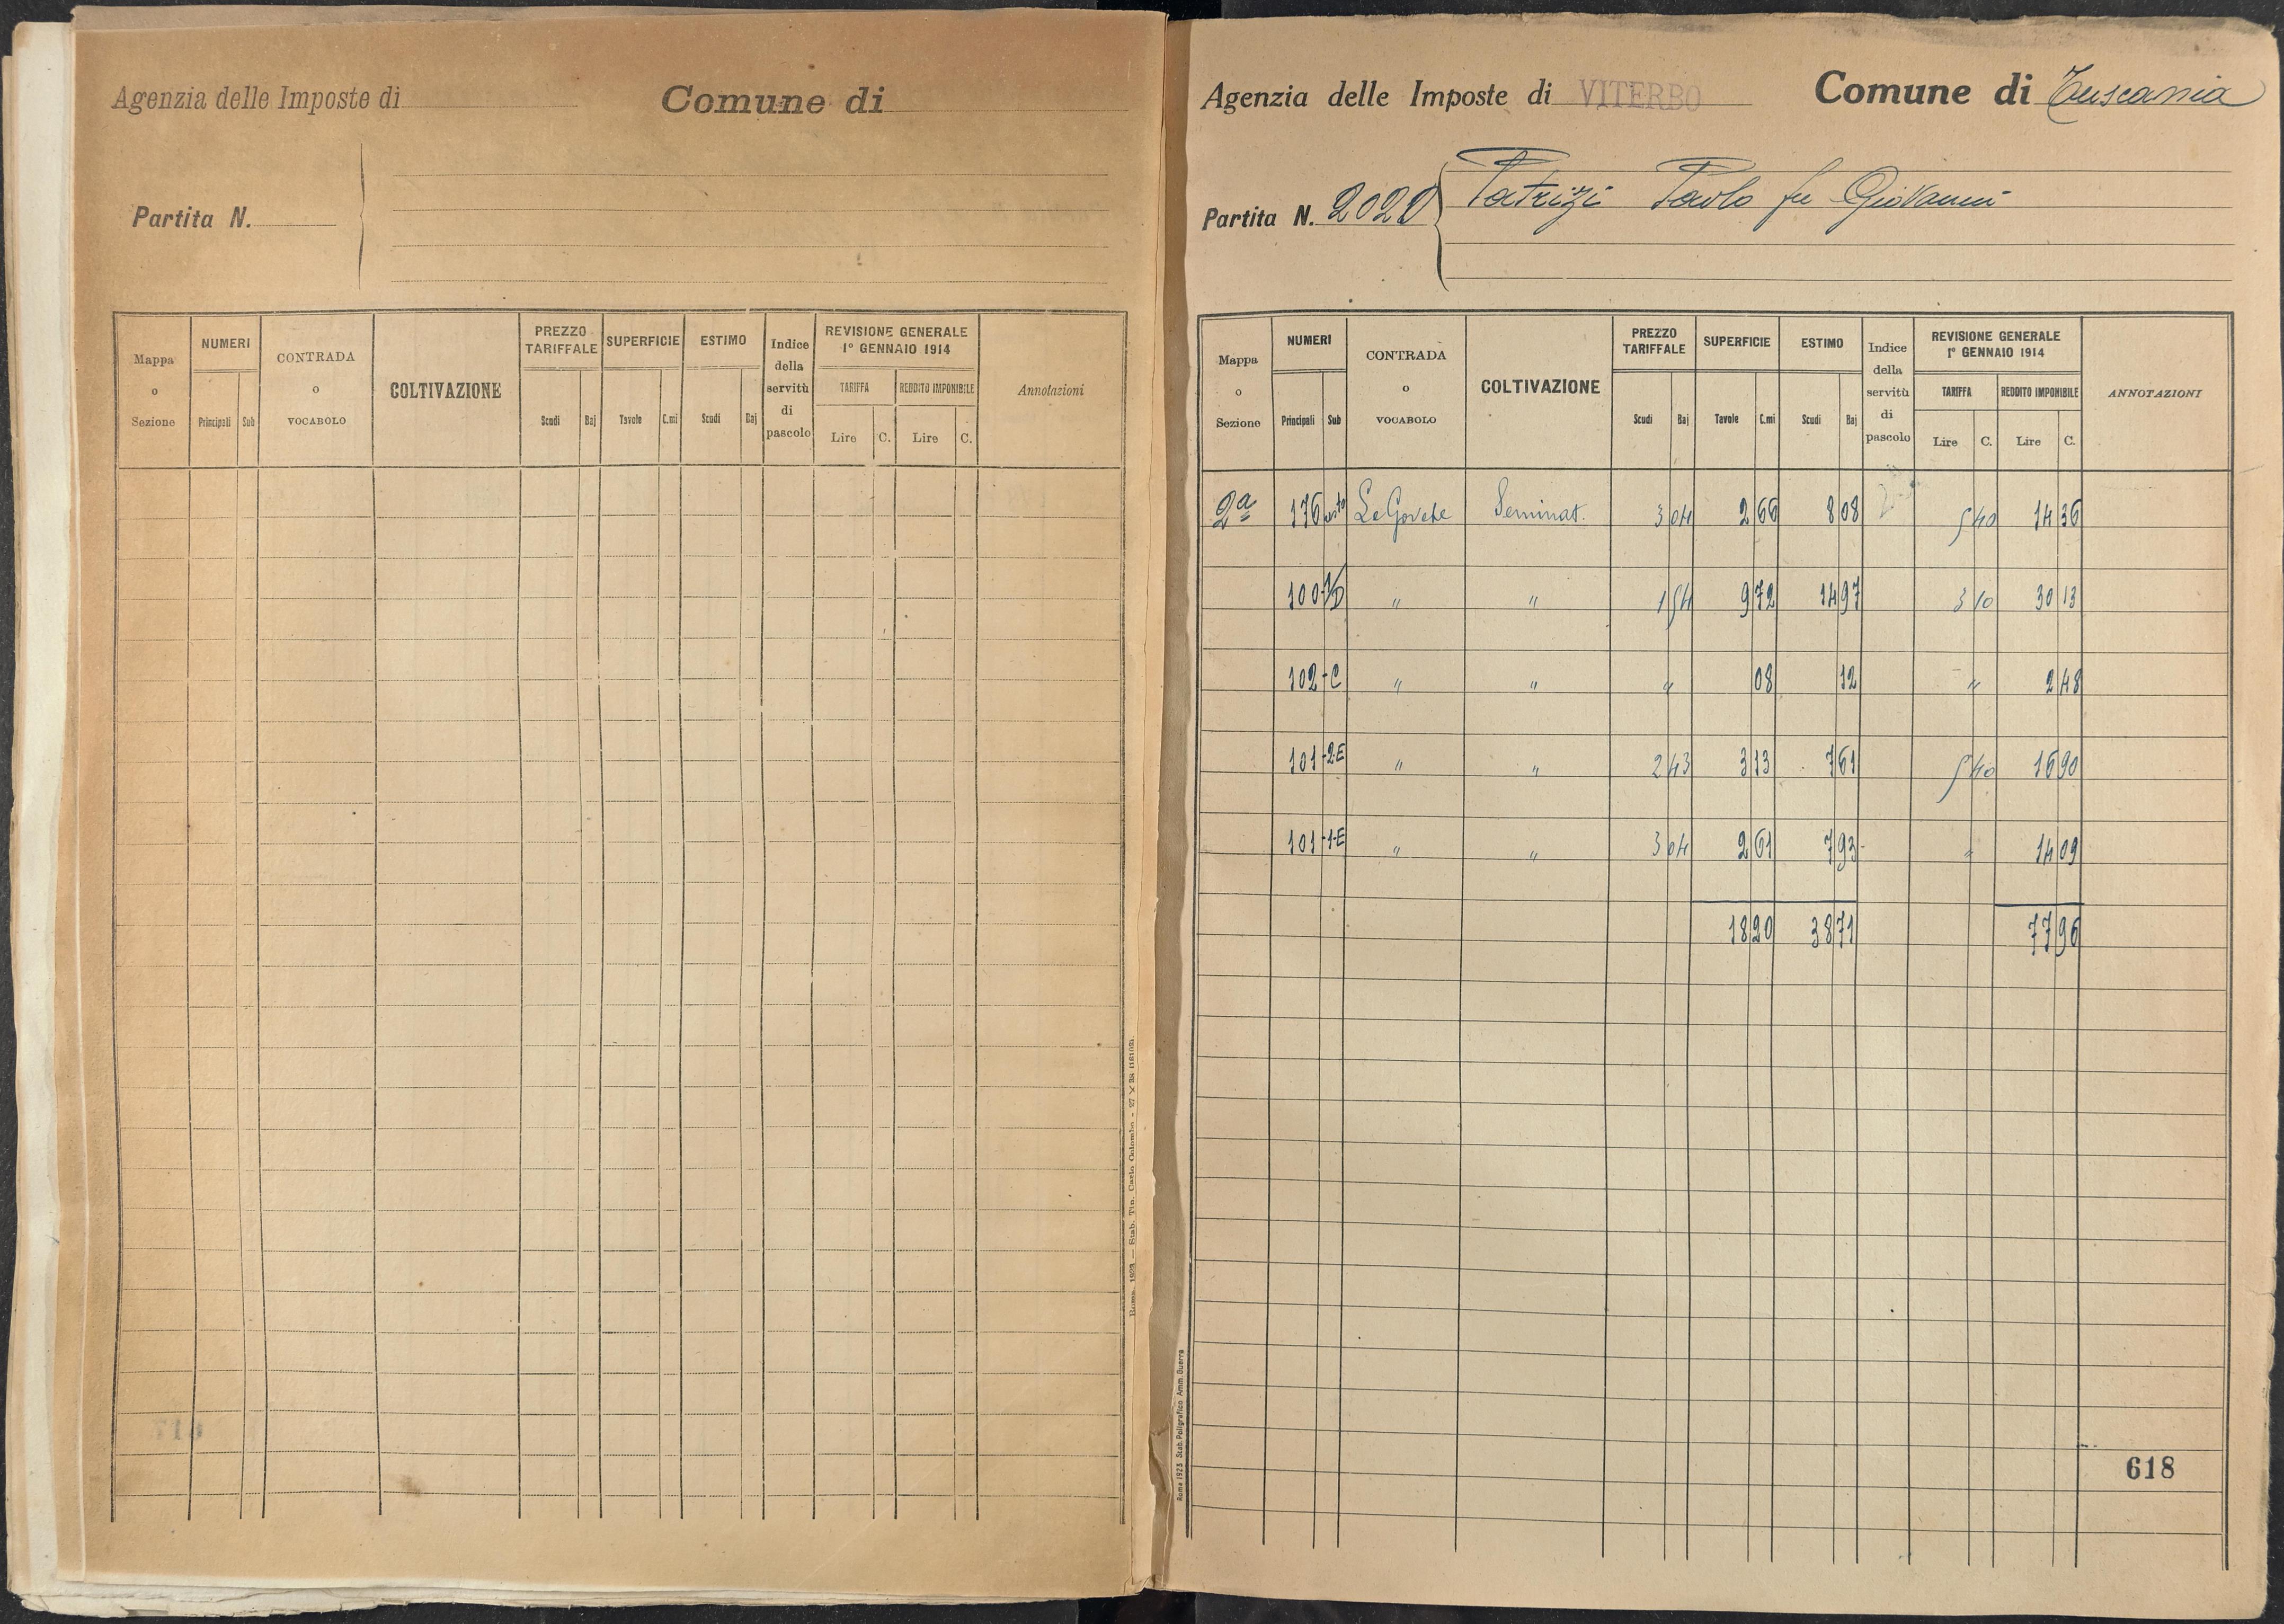 Agenzia delle Imposte di Comune di
Partita N.
Mappa o Sezione NUMERI Principali Sub CONTRADA o VOCABOLO COLTIVAZIONE PREZZO TARIFFALE Scudi Baj SUPERFICIE Tavole C.mi ESTIMO Scudi Baj Indice della servitù di pascolo REVISIONE GENERALE 1° GENNAIO 1914 TARIFFA Lire C. REDDITO IMPONIBILE Lire C. Annotazioni
Agenzia delle Imposte di VITERBO Comune di Tuscania
Partita N. 2020 Patrizi Paolo fu Giovanni
Mappa o Sezione NUMERI Principali Sub CONTRADA o VOCABOLO COLTIVAZIONE PREZZO TARIFFALE Scudi Baj SUPERFICIE Tavole C.mi ESTIMO Scudi Baj Indice della servitù di pascolo REVISIONE GENERALE 1° GENNAIO 1914 TARIFFA Lire C. REDDITO IMPONIBILE Lire C. ANNOTAZIONI
2ª 176 Seminat. 3 04 2 66 8 08 5 40 14 36
100 " " 1 54 9 72 14 97 3 10 30 13
102 - C " " " 08 12 " 2 48
101 - 2-E " " 2 43 3 13 7 61 5 40 16 90
101 - 1-E " " 3 04 2 61 7 93 " 14 09
18 20 38 71 77 96
618
Roma 1923 Stab. Poligrafico Amm. Guerra